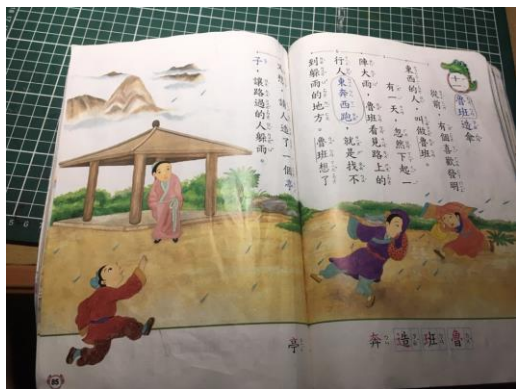 十一
魯班造傘
從前，有個喜歡發明
東西的人，叫做魯班。
有一天，忽然下起一
陣大雨，魯班看見路上的
行人東奔西跑，就是找不
到躲雨的地方。魯班想了
想，讓人造了一個亭
子，讓路過的人躲雨。
魯班造奔
亭
85